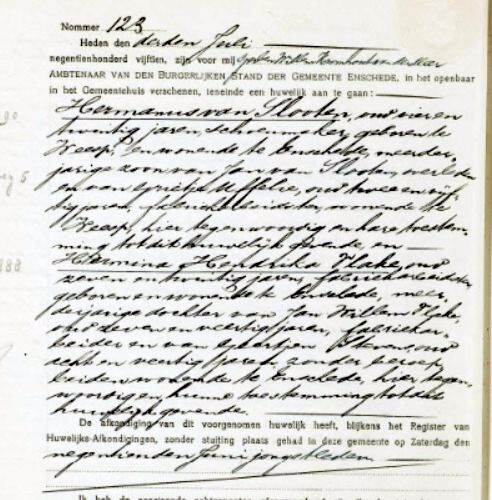 Nommer 123
Heden den derden Juli
negentienhonderd vijftien, zijn voor mij
AMBTENAAR VAN DEN BURGERLIJKEN STAND DER GEMEENTE ENSCHEDE, in het openbaar
in het Gemeentehuis verschenen, teneinde een huwelijk aan te gaan:
Hermanus van Slooten, oud vier en
twintig jaren, schoenmaker, geboren te
Weesp, en wonende te Enschede, meerder-
jarige zoon van Jan van Slooten, overleden
en van oud twee en vijf-
tig jaren, wonende te
Weesp, hier tegenwoordig en hare toestem-
ming tot dit huwelijk gevende, en
Hermina Hendrika Flake, oud
zeven en twintig jaren, fabriekarbeidster,
geboren en wonende te Enschede, meer-
derjarige dochter van Jan Willem Flake,
oud zeven en veertig jaren, fabriekar-
beider en van Stevens, oud
acht en veertig jaren, zonder beroep,
beiden wonende te Enschede, hier tegen-
woordig en hunne toestemming tot dit
huwelijk gevende.
De afkondiging van dit voorgenomen huwelijk heeft, blijkens het Register van
Huwelijks-Afkondigingen, zonder stuiting plaats gehad in deze gemeente op Zaterdag den
negentienden Juni jongstleden.